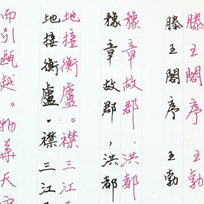 滕王閣序 王勃
滕王閣序 王勃
豫章故郡,洪都
豫章故郡,洪都
地接衡廬。襟三江
地接衡廬。襟三江
而引甌越。物華天